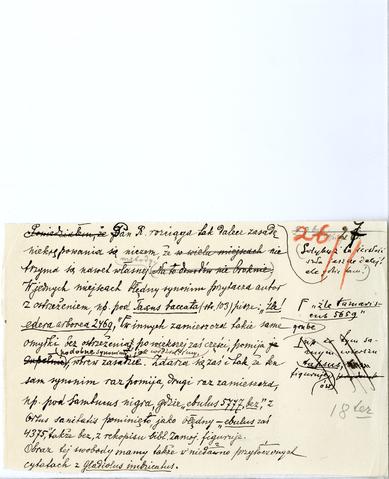 26. 27
11
Powiedziałem, że Pan R. rozciąga tak dalece zasadę
niekrępowania się niczem, że w wielu miejscach nie
metody
trzyma się nawet własnej (Na to dowodów nie braknie)
W jednych miejscach błędny synonim przytacza autor
z ostrzeżeniem, np. pod Taxus baccata (str. 103) pisze: "źle
edera arborea 2469", W innych zamieszcza takie same
omyłki bez ostrzeżenia, po większej zaś części, pomija je
zupełnie, wbrew zasadzie. Zdarza się zaś i tak, że ten
sam synonim raz pomija, drugi raz zamieszcza,
np. pod Sambucus nigra, gdzie "ebulus 5777, bez," z
Ortus sanitatis pominięto, jako błędny – ebulus zaś
4375, także bez, z rękopisu bibl. Zamoj. figuruje.
Obraz tej swobody mamy także w niedawno przytoczonych
cytatach z Gladiolus imbricatus.
"źle
grube
np. w tym samym
Taxus,
figuruje
18 ter